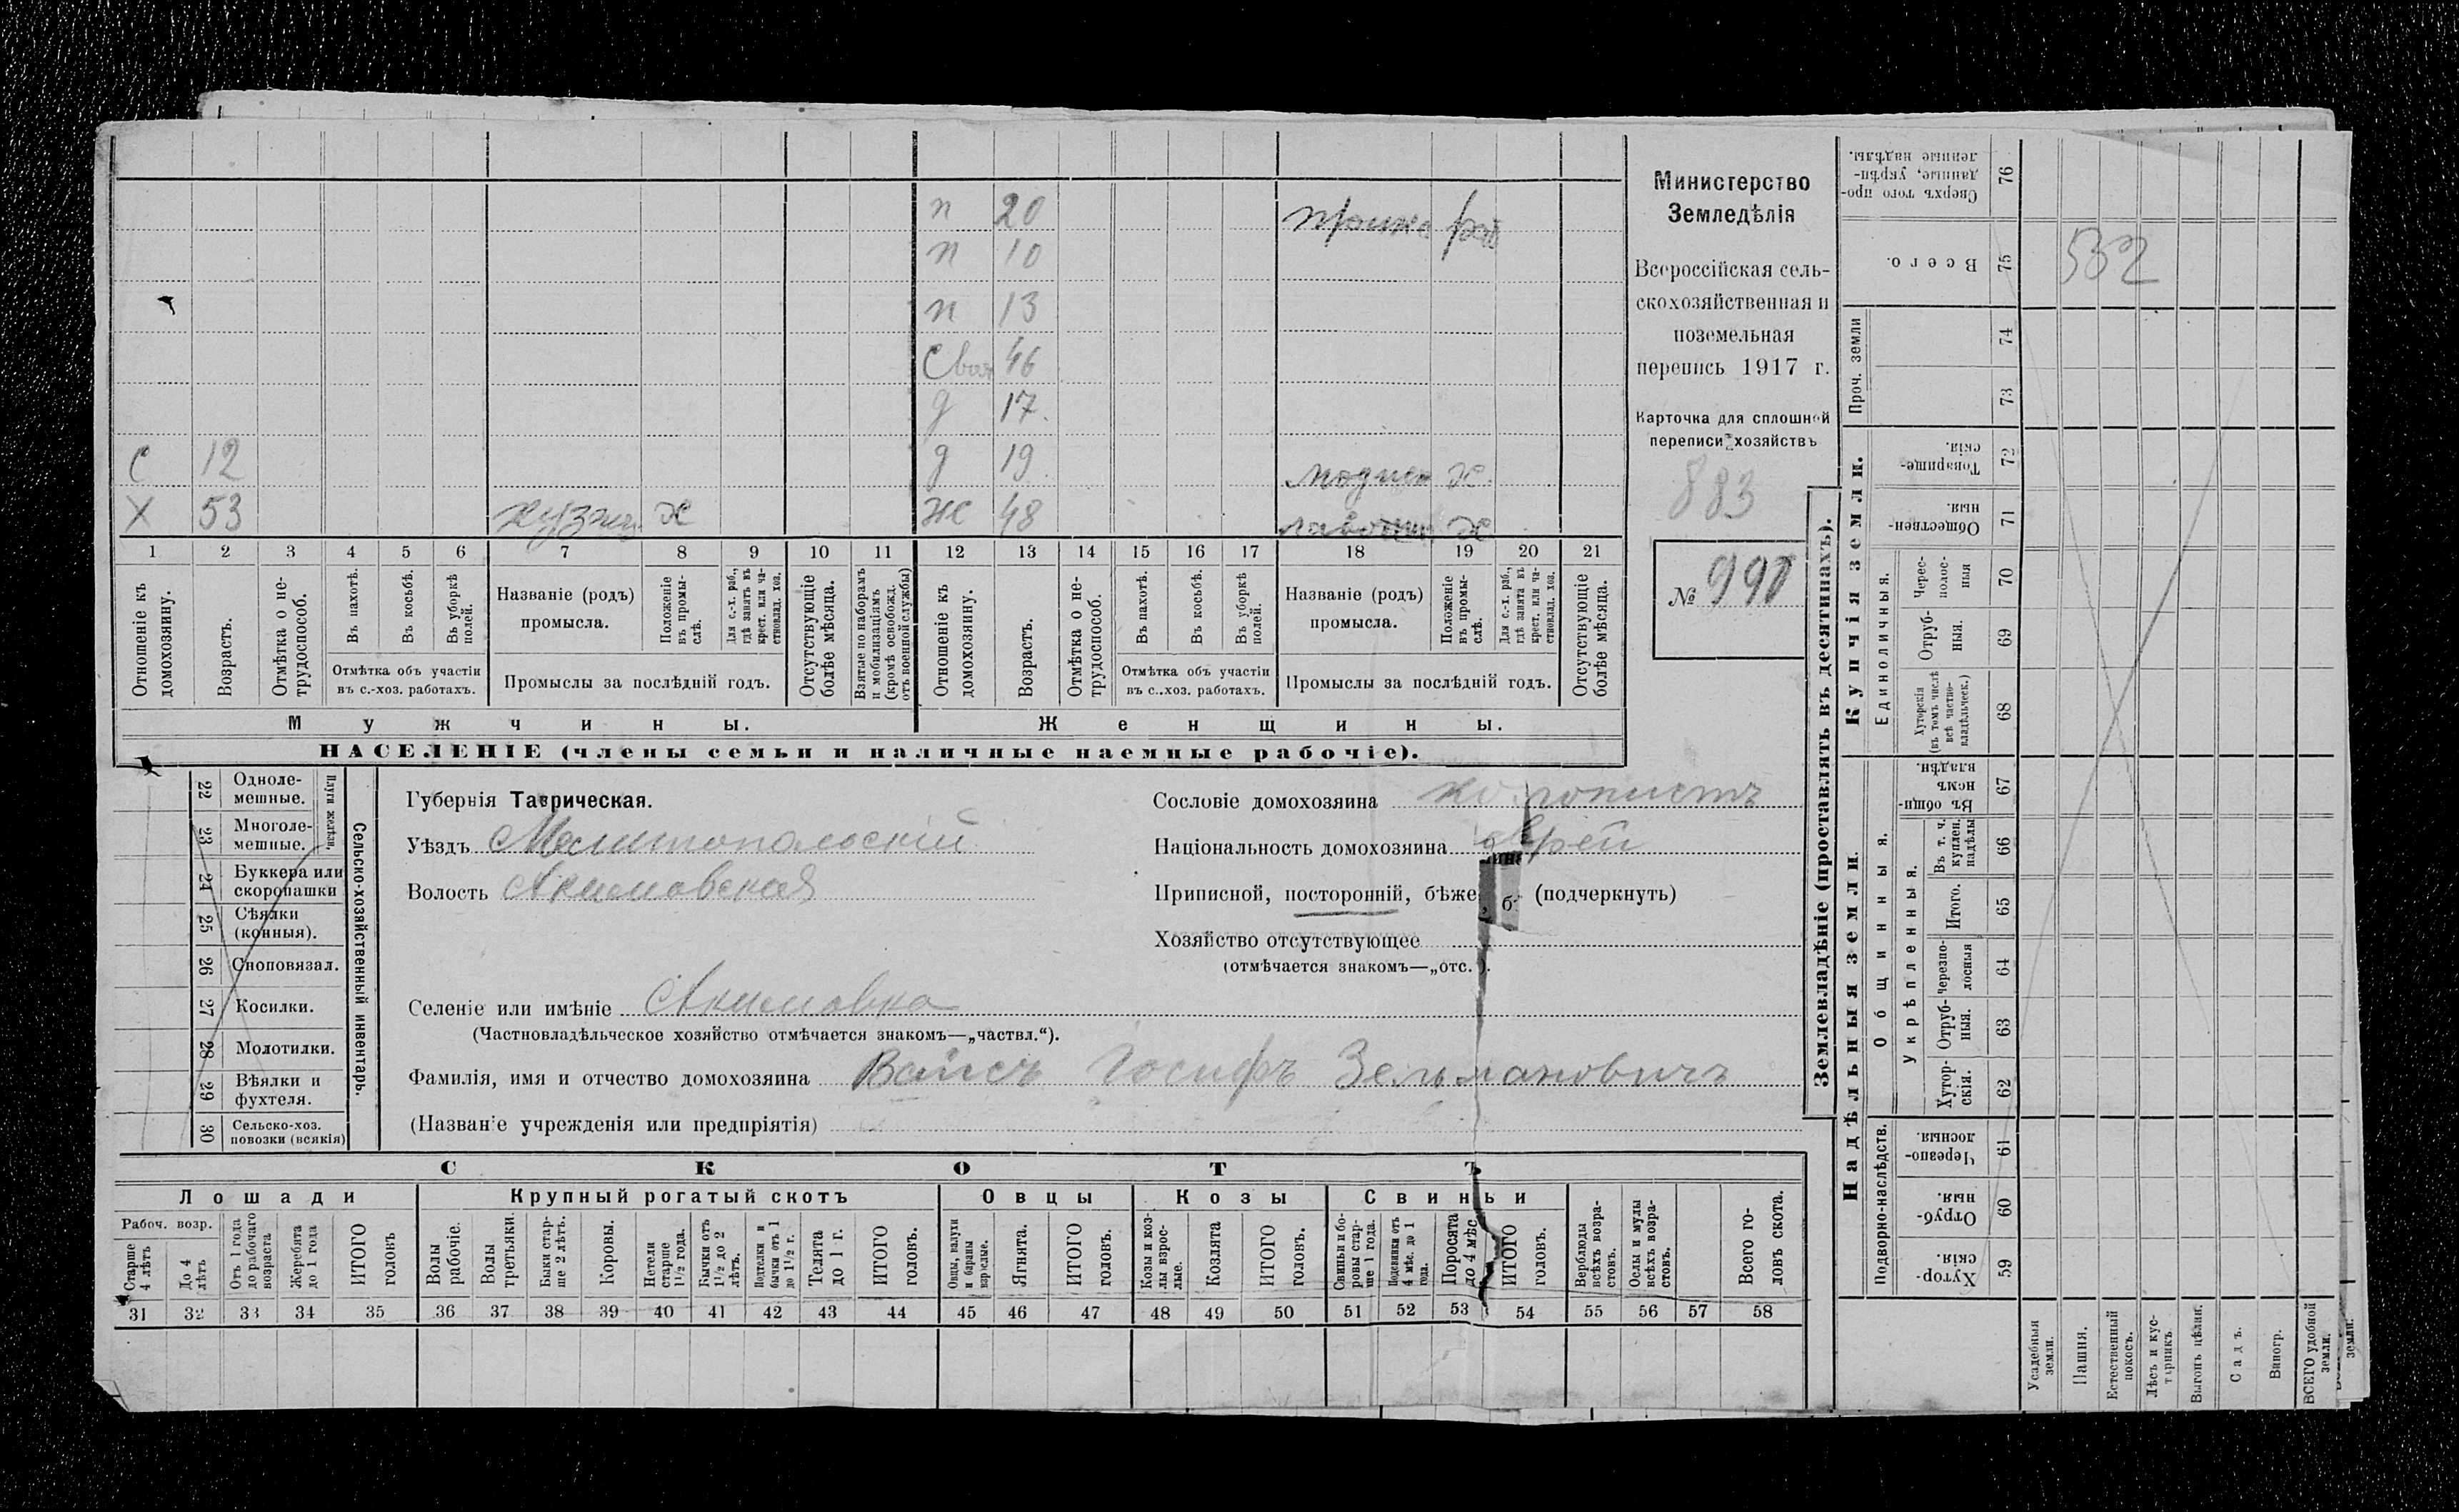 п 20 прика раб
п 10
п 13
Своя 46
д 17
С 12 д 19 модист Х
Х 53 кузнец Х Ж 48 Х
1 2 3 4 5 6 7 8 9 10 11 12 13 14 15 16 17 18 19 20 21
Отношеніе къ домохозяину.
Возрастъ.
Отмѣтка о не-трудоспособ.
Въ пахотѣ.
Въ косьбѣ.
Въ уборкѣ полей.
Отмѣтка объ участіи
въ с.-хоз. работахъ.
Названіе (родъ)
промысла.
Положеніе въ промы-слѣ.
Для с.-х. раб., гдѣ занятъ въ крест. или ча-стновлад. хоз.
Промыслы за послѣдній годъ.
Отсутствующіе болѣе мѣсяца.
Взятые по наборамъ и мобилизаціямъ (кромѣ освобожд. отъ военной службы)
Отношеніе къ домохозяину.
Возрастъ.
Отмѣтка о не-трудоспособ.
Въ пахотѣ.
Въ косьбѣ.
Въ уборкѣ полей.
Отмѣтка объ участіи
въ с.-хоз. работахъ.
Названіе (родъ)
промысла.
Положеніе въ промы-слѣ.
Для с.-х. раб., гдѣ занята въ крест. или ча-стновлад. хоз.
Промыслы за послѣдній годъ.
Отсутствующіе болѣе мѣсяца.
Мужчины.
Женщины.
НАСЕЛЕНІЕ (члены семьи и наличные наемные рабочіе).
Министерство
Земледѣлія
Всероссійская сель-
скохозяйственная и
поземельная
перепись 1917 г.
Карточка для сплошной
переписи хозяйствъ
883
№ 990
Плуги желѣзн.
22 Одноле-мешные.
23 Многоле-мешные.
24 Буккера или скоропашки
25 Сѣялки (конныя).
26 Сноповязал.
27 Косилки.
28 Молотилки.
29 Вѣялки и фухтеля.
30 Сельско-хоз. повозки (всякія)
Сельско-хозяйственный инвентарь.
Губернія Таврическая.
Уѣздъ Мелитопольскій
Волость Акимовская
Сословіе домохозяина
Національность домохозяина еврей
Приписной, посторонній, бѣже (подчеркнуть)
Хозяйство отсутствующее
(отмѣчается знакомъ—„отс.").
Селеніе или имѣніе Акимовка
(Частновладѣльческое хозяйство отмѣчается знакомъ—„частвл.“).
Фамилія, имя и отчество домохозяина Вайсъ Іосифъ Зельмановичъ
(Названіе учрежденія или предпріятія)
СКОТЪ
Лошади
Крупный рогатый скотъ
Овцы
Козы
Свиньи
Рабоч. возр.
Старше 4 лѣтъ
До 4 лѣтъ
Отъ 1 года до рабочаго возраста
Жеребята до 1 года
ИТОГО головъ
Волы рабочіе.
Волы третьяки.
Быки стар-ше 2 лѣтъ.
Коровы.
Нетели старше 1½ года.
Бычки отъ 1½ до 2 лѣтъ.
Подтелки и бычки отъ 1 до 1½ г.
Телята до 1 г.
ИТОГО головъ.
Овцы, валухи и бараны взрослые.
Ягнята.
ИТОГО головъ.
Козы и коз-лы взрос-лые.
Козлята
ИТОГО головъ.
Свиньи и бо-ровы стар-ше 1 года.
Подсвинки отъ 4 мѣс. до 1 года.
Поросята до 4 мѣс.
ИТОГО головъ.
Верблюды всѣхъ возра-стовъ.
Ослы и мулы всѣхъ возра-стовъ.
Всего го-ловъ скота.
31 32 33 34 35 36 37 38 39 40 41 42 43 44 45 46 47 48 49 50 51 52 53 54 55 56 57 58
Землевладѣніе (проставлять въ десятинахъ).
Надѣльныя земли.
Купчія земли.
Проч. земли
Подворно-наслѣдств.
Общинныя.
Укрѣпленныя.
Единоличныя.
Хутор-скія. 59
Отруб-ныя. 60
Черезпо-лосныя. 61
Хутор-скія. 62
Отруб-ныя. 63
Черезпо-лосныя 64
Итого. 65
Въ т. ч. куплен. надѣлы 66
Въ общи-номъ владѣн. 67
Хуторскія (въ томъ числѣ всѣ частно-владѣльческ.) 68
Отруб-ныя. 69
Черес-полос-ныя 70
Обществен-ныя. 71
Товарище-скія. 72
73
74
Всего. 75
Сверхъ того про-данные, укрѣп-ленные надѣлы. 76
532
Усадебныя земли.
Пашня.
Естественный покосъ.
Лѣсъ и кус-тарникъ.
Выгонъ цѣлин.
Садъ.
Виногр.
ВСЕГО удобной земли.
земли.